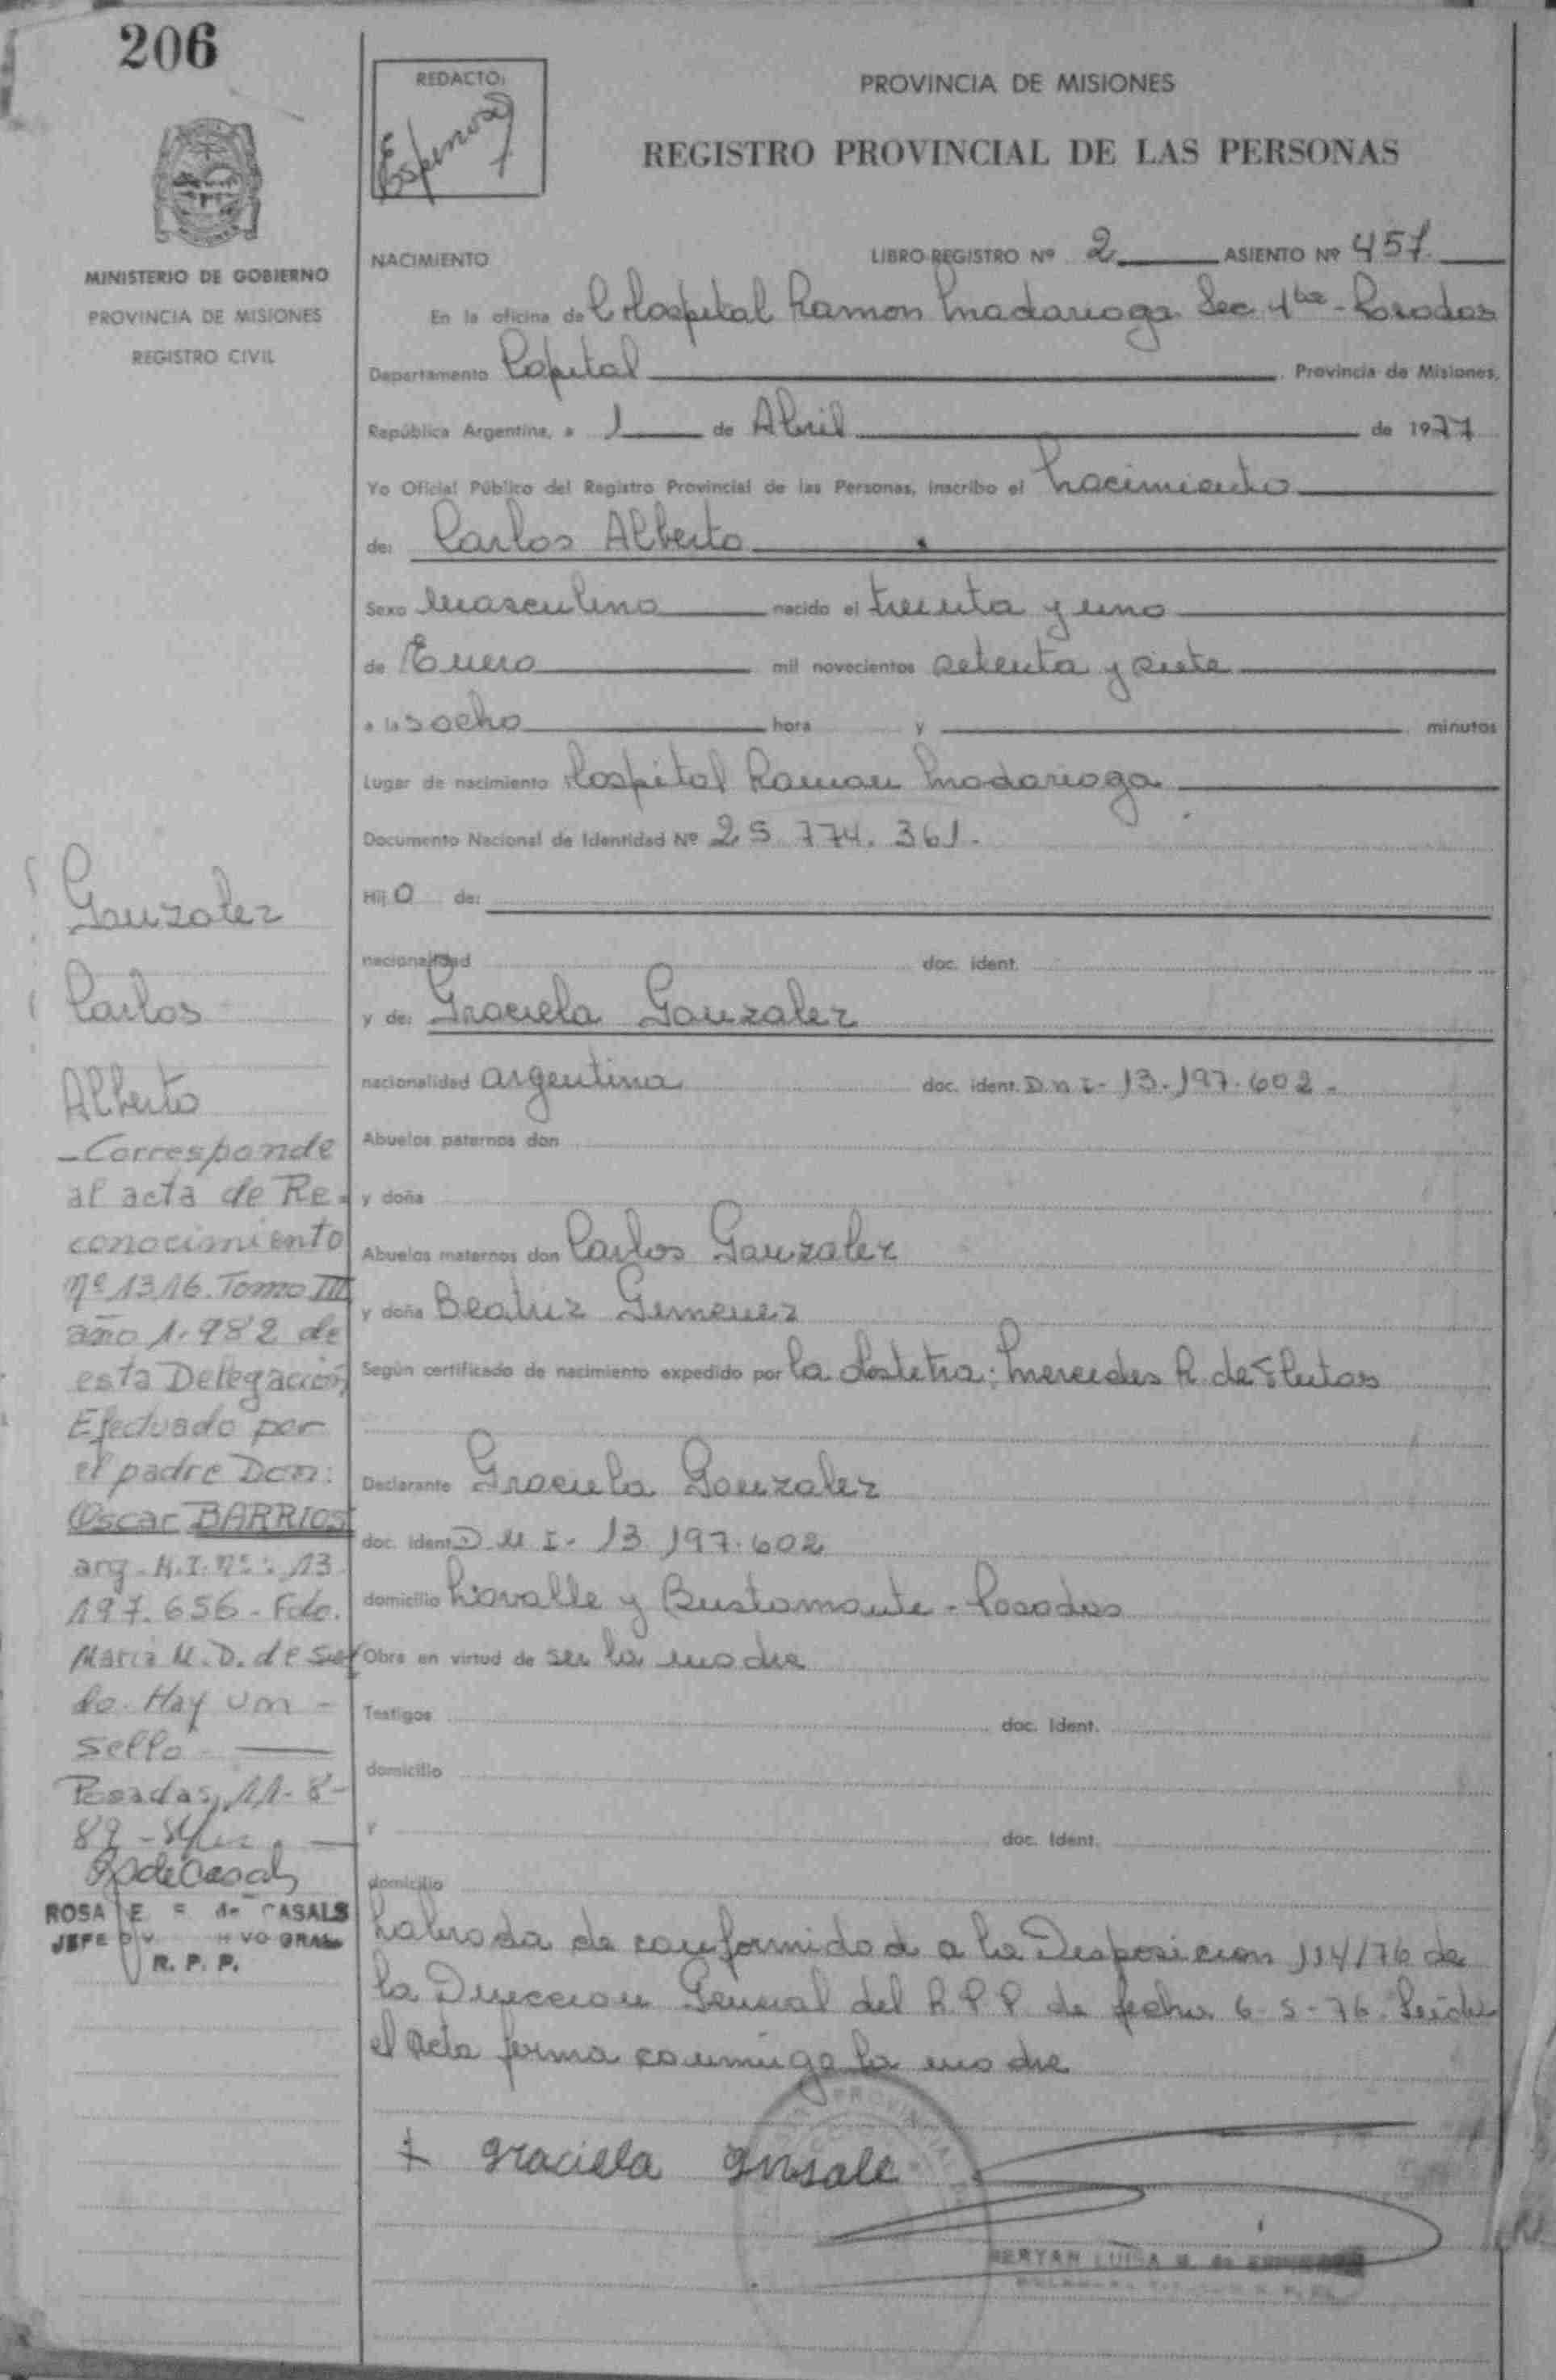 206
REDACTO:
Espinosa
PROVINCIA DE MISIONES
REGISTRO PROVINCIAL DE LAS PERSONAS
MINISTERIO DE GOBIERNO
PROVINCIA DE MISIONES
REGISTRO CIVIL
NACIMIENTO LIBRO REGISTRO Nº 2 ASIENTO Nº 457
En la oficina de Hospital Ramon Madariaga Sec 4ta - Posadas
Departamento Capital Provincia de Misiones,
República Argentina, a 1 de Abril de 1977
Yo Oficial Público del Registro Provincial de las Personas, inscribo el Nacimiento
de: Carlos Alberto
Sexo Masculino nacido el treinta y uno
de Enero mil novecientos setenta y siete
a las ocho hora y minutos
Lugar de nacimiento Hospital Ramon Madariaga
Documento Nacional de Identidad Nº 25.774.361.
Hijo de:
nacionalidad doc. ident.
y de: Graciela Gonzalez
nacionalidad argentina doc. ident. D.N.I- 13.197.602.-
Abuelos paternos don
y doña
Abuelos maternos don Carlos Gonzalez
y doña Beatriz Gimenez
Según certificado de nacimiento expedido por la Obstetra: Mercedes R. de
Declarante Graciela Gonzalez
doc. ident D N I- 13.197.602
domicilio Lavalle y Bustamante - Posadas
Obra en virtud de ser la madre
Testigos doc. Ident.
domicilio
y doc. Ident.
domicilio
Labrada de conformidad a la Disposicion 114/76 de
la Direccion General del R.P.P de fecha 6-5-76. Leida
el acta firma conmigo la madre
graciela gnsale
LUISA
Gonzalez
Carlos
Alberto
- Corresponde
al acta de Re-
conocimiento
nº 1316. Tomo III
año 1.982 de
esta Delegación
Efectuado por
el padre Don:
Oscar BARRIOS
arg - M.I. nº: 13
197.656 - Fdo.
Maria M. D. de
do. Hay un -
sello
Posadas, 11-8-
89 -
R de Casals
ROSA E de CASALS
JEFE GRAL
R. P. P.